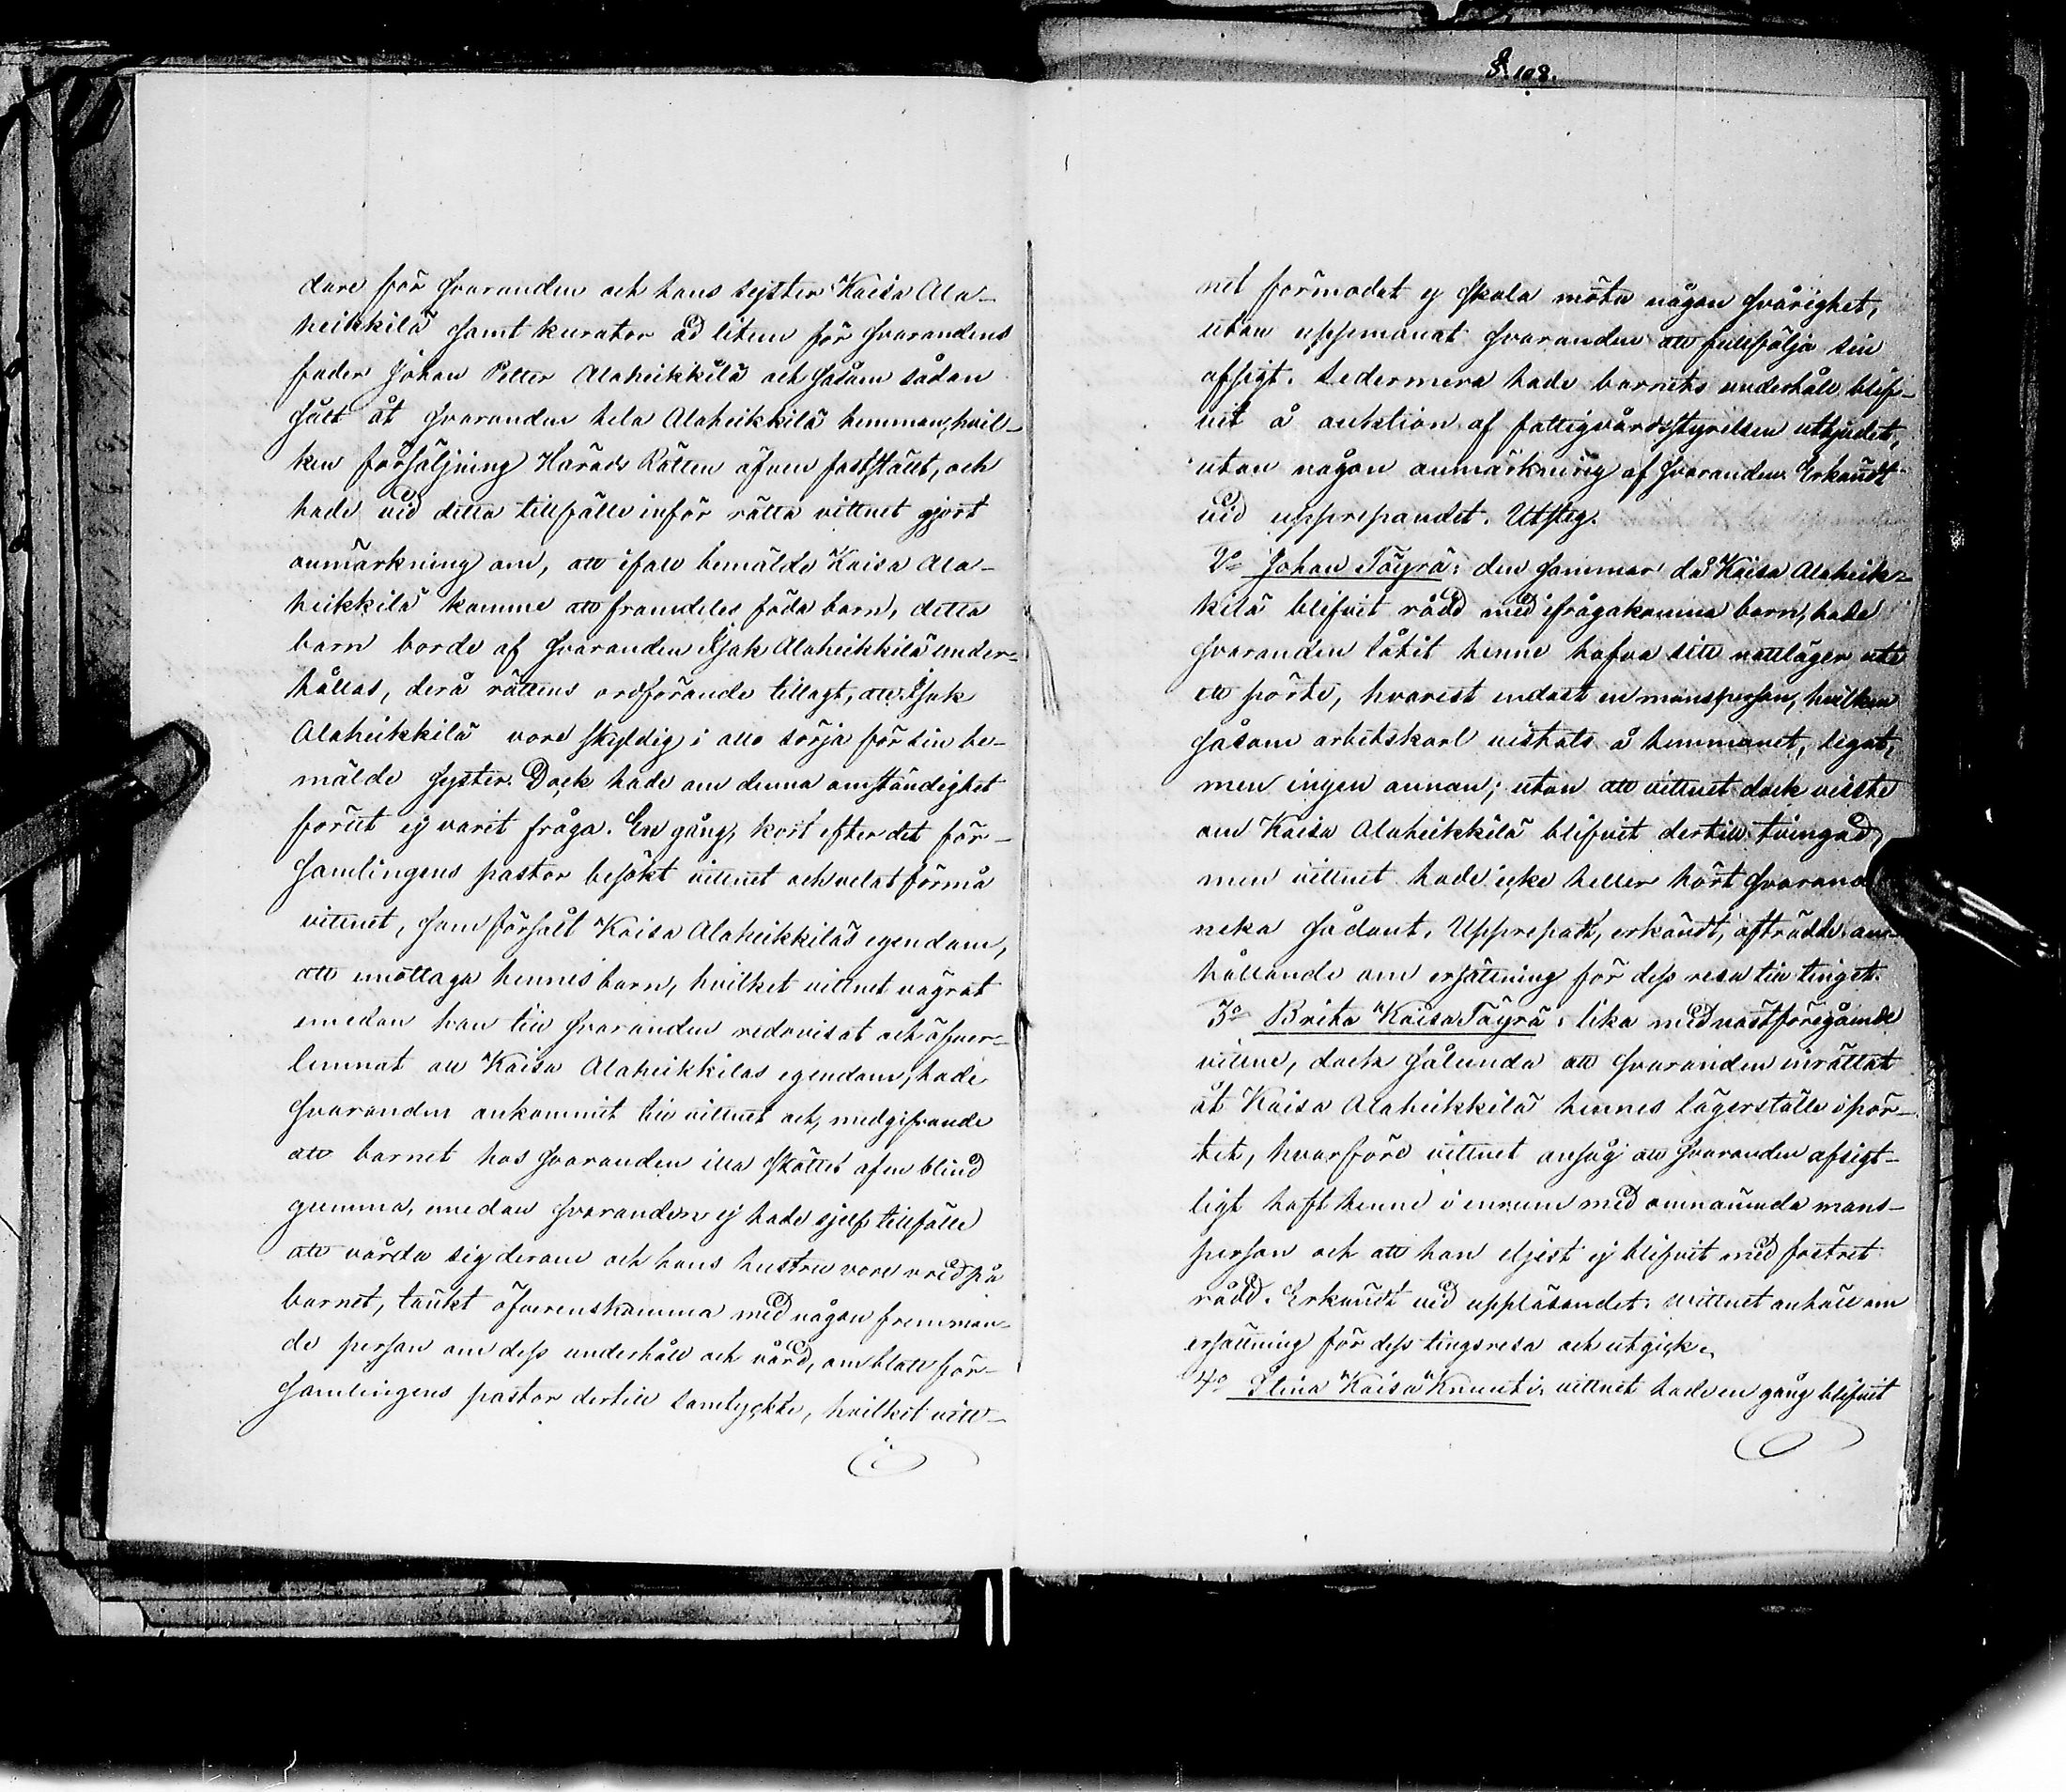 dare för svaranden och hans syster Kaisa Ala-
heikkilä samt kurator ad litem för svarandens
fader Johan Petter Alaheikkilä och såsom sådan
sålt åt svaranden hela Alaheikkilä hemman, hvil-
ken försäljning Härads Rätten äfven fastställt, och
hade vid detta tillfälle inför rätta vittnet gjort
anmärkning om, att ifall bemälde Kaisa Ala-
heikkilä komme att framdeles föda barn, detta
barn borde af svaranden Isak Alaheikkilä under-
hållas, derå rättens ordförande tillagt, att Isak
Alaheikkilä vore skyldig i allo sörja för sin be-
mälde syster. Dock hade om denna omständighet
förut ej varit fråga. En gång, kort efter det för-
samlingens pastor besökt vittnet och velat förmå
vittnet, som försålt Kaisa Alaheikkiläs egendom,
att emottaga hennes barn, hvilket vittnet vägrat
emedan han till svaranden redovisat och öfver-
lemnat all Kaisa Alaheikkilas egendom, hade
svaranden ankommit till vittnet och, medgifvande
att barnet hos svaranden illa sköttes af en blind
gumma, emedan svaranden ej hade sjelf tillfälle
att vårda sig derom och hans hustru vore vred på
barnet, tänkt öfverenskomma med någon fremman-
de person om dess underhåll och vård, om blott för-
samlingens pastor dertill samtyckte, hvilket vitt-
§. 108.
net förmodat ej skola möta någon svårighet,
utan uppmanat svaranden att fullfölja sin
afsigt. Sedermera hade barnets underhåll blif-
vit å auktion af fattigvårdsstyrelsen utbjudet,
utan någon anmärkning af svaranden. Erkändt
vid upprepandet. Utsteg.
2o Johan Töyrä: den sommar då Kaisa Alaheik-
kilä blifvit rådd med ifrågakomna barn, hade
svaranden låtit henne hafva sitt nattläger uti
ett pörte, hvarest endast en mansperson, hvilken
såsom arbetskarl vistats å hemmanet, legat,
men ingen annan; utan att vittnet dock visste
om Kaisa Alaheikkilä blifvit dertill tvingad,
men vittnet hade icke heller hört svarand
neka sådant. Upprepadt, erkändt, afträdde an-
hållande om ersättning för dess resa till tinget.
3o Brita Kaisa Töyrä: lika med nästföregående
vittne, dock sålunda att svaranden inrättat
åt Kaisa Alaheikkilä hennes lägerställe i pör-
tet, hvarföre vittnet ansåg att svaranden afsigt-
ligt haft henne i enrum med omnämnda mans-
person och att hon eljest ej blifvit med fostret
rådd. Erkändt vid uppläsandet. Wittnet anhöll om
ersättning för dess tingsresa och utgick.
4o Stina Kaisa Knuuti: vittnet hade en gång blifvit